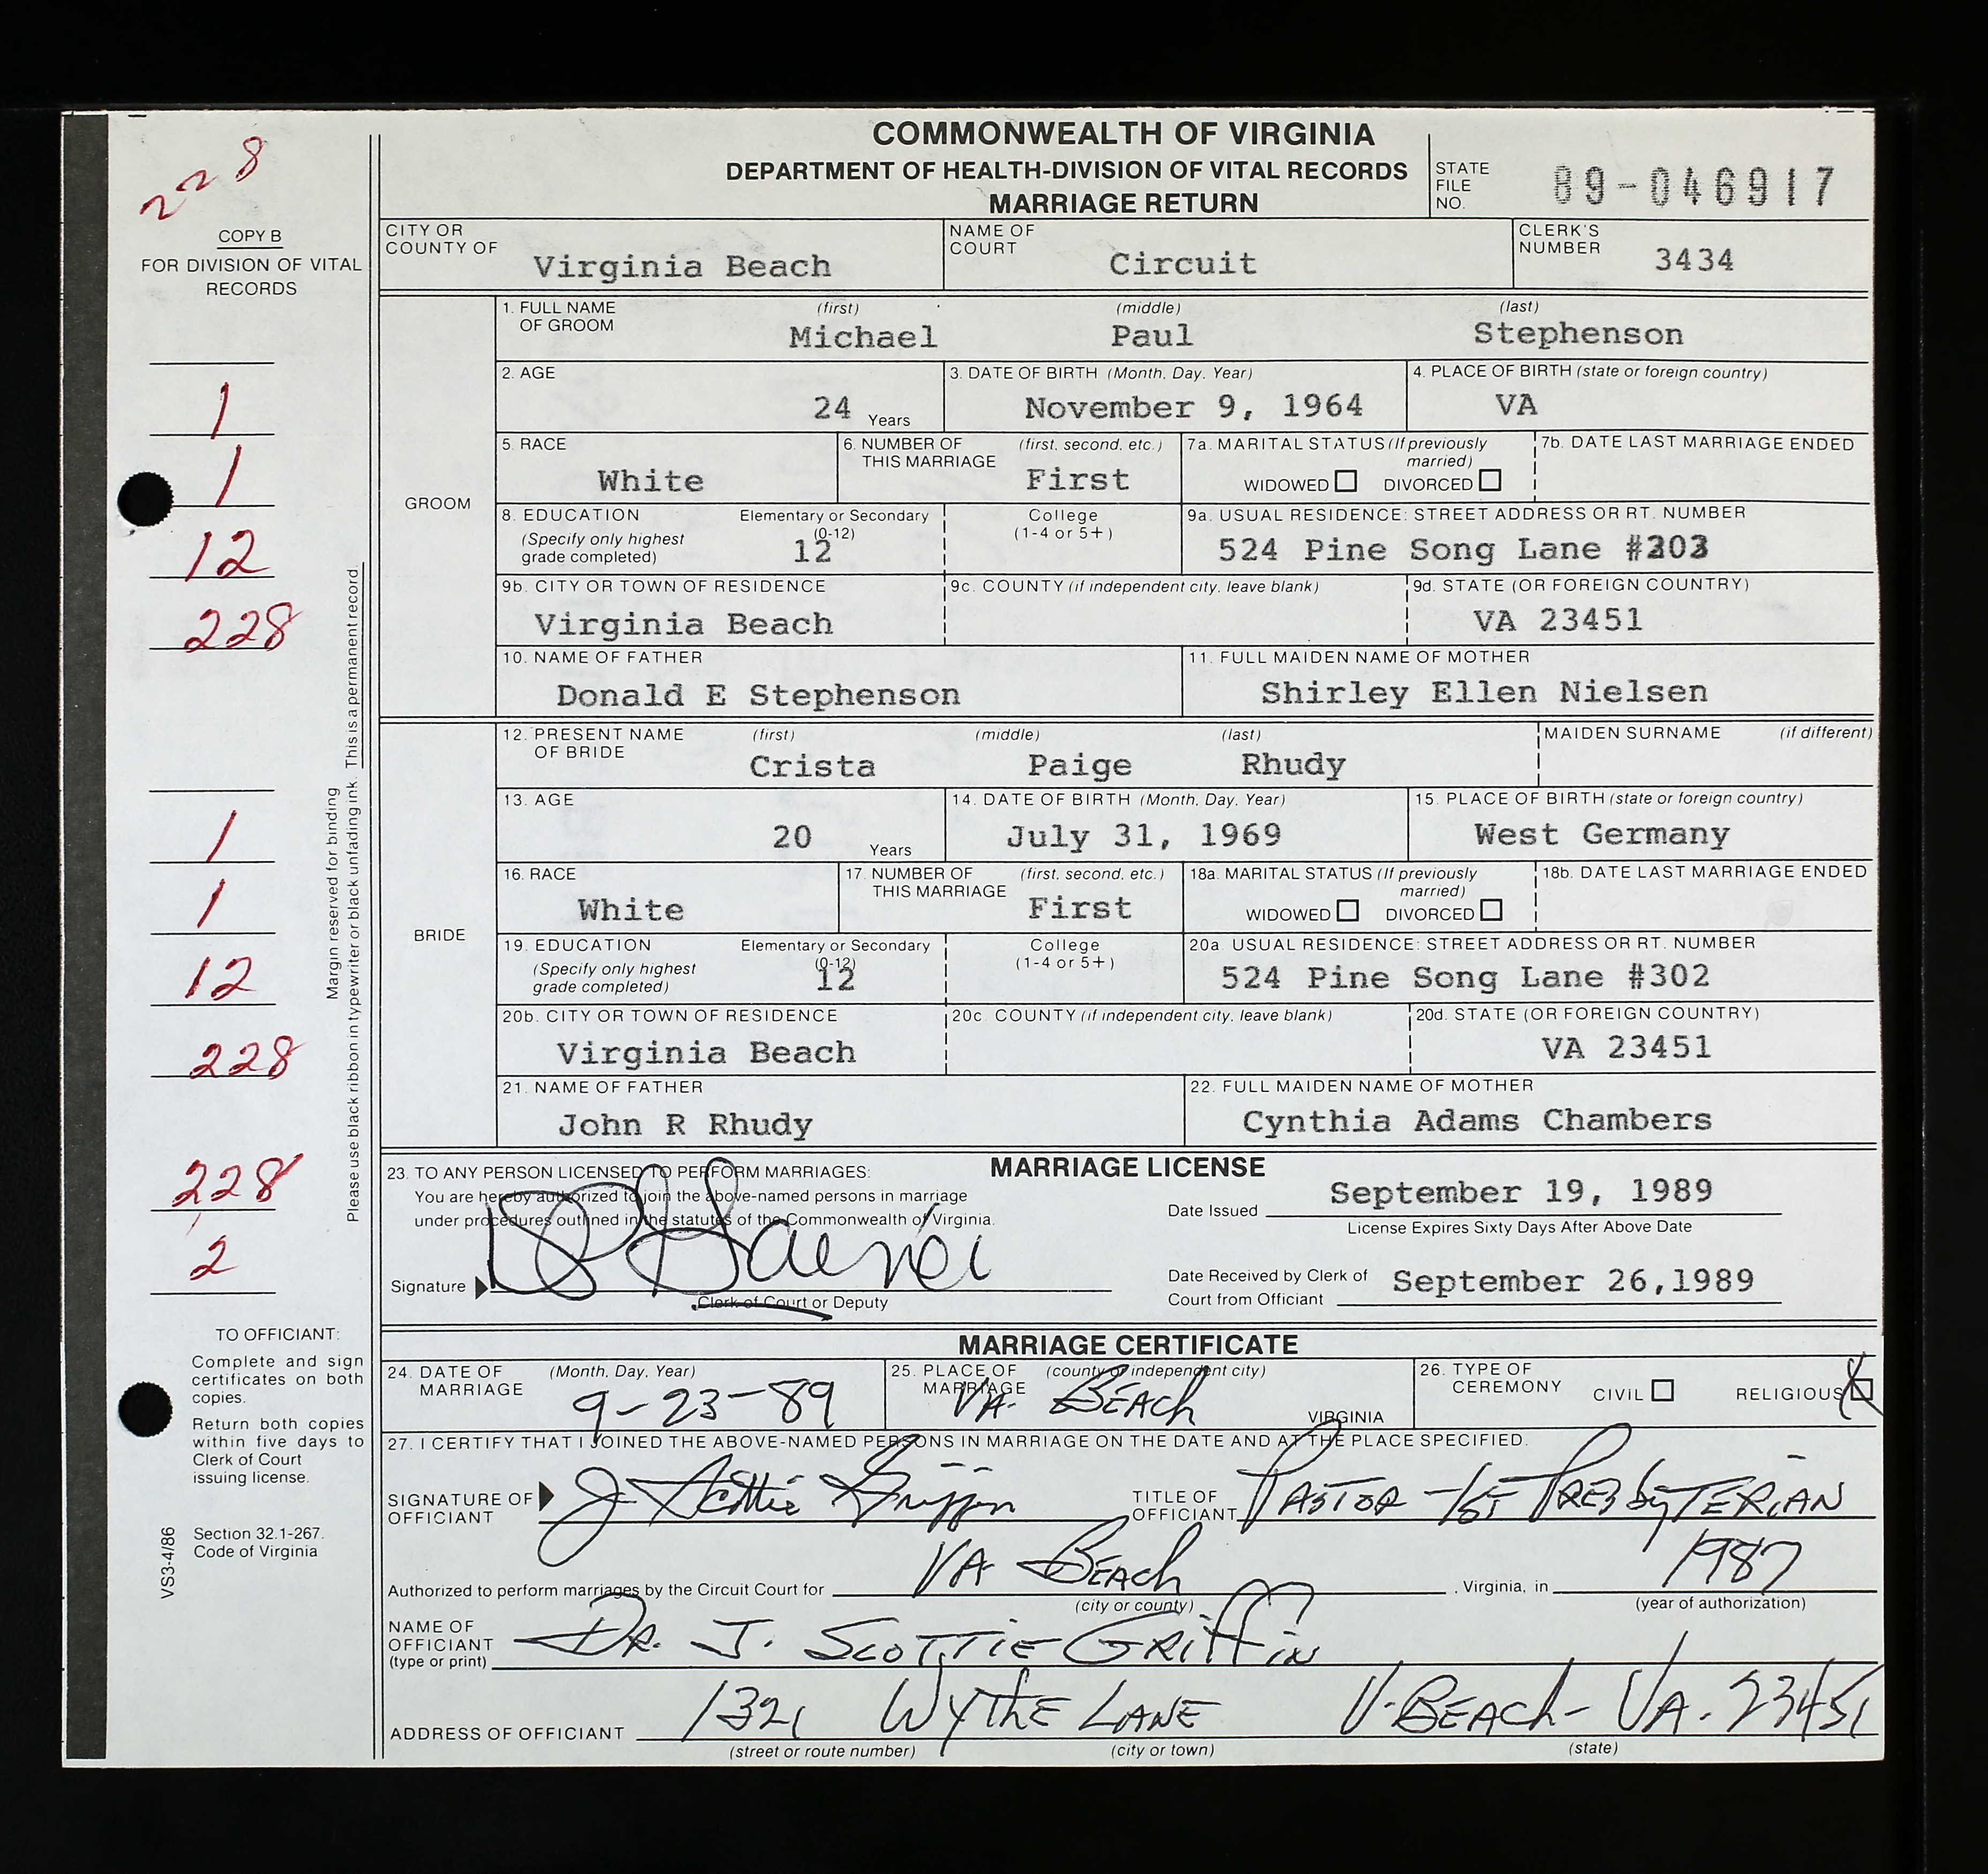 COMMONWEALTH OF VIRGINIA
DEPARTMENT OF HEALTH-DIVISION OF VITAL RECORDS
MARRIAGE RETURN
STATE FILE NO. 89-046917
228
COPY B
FOR DIVISION OF VITAL RECORDS
CITY OR COUNTY OF Virginia Beach
NAME OF COURT Circuit
CLERK'S NUMBER 3434
GROOM
1. FULL NAME OF GROOM (first) Michael (middle) Paul (last) Stephenson
2. AGE 24 Years
3. DATE OF BIRTH (Month, Day, Year) November 9, 1964
4. PLACE OF BIRTH (state or foreign country) VA
5. RACE White
6. NUMBER OF THIS MARRIAGE (first, second, etc.) First
7a. MARITAL STATUS (If previously married) WIDOWED DIVORCED
7b. DATE LAST MARRIAGE ENDED
8. EDUCATION (Specify only highest grade completed) Elementary or Secondary (0-12) 12 College (1-4 or 5+)
9a. USUAL RESIDENCE: STREET ADDRESS OR RT. NUMBER 524 Pine Song Lane
9b. CITY OR TOWN OF RESIDENCE Virginia Beach
9c. COUNTY (if independent city, leave blank)
9d. STATE (OR FOREIGN COUNTRY) VA 23451
10. NAME OF FATHER Donald E Stephenson
11. FULL MAIDEN NAME OF MOTHER Shirley Ellen Nielsen
BRIDE
12. PRESENT NAME OF BRIDE (first) Crista (middle) Paige (last) Rhudy
MAIDEN SURNAME (if different)
13. AGE 20 Years
14. DATE OF BIRTH (Month, Day, Year) July 31, 1969
15. PLACE OF BIRTH (state or foreign country) West Germany
16. RACE White
17. NUMBER OF THIS MARRIAGE (first, second, etc.) First
18a. MARITAL STATUS (If previously married) WIDOWED DIVORCED
18b. DATE LAST MARRIAGE ENDED
19. EDUCATION (Specify only highest grade completed) Elementary or Secondary (0-12) 12 College (1-4 or 5+)
20a. USUAL RESIDENCE: STREET ADDRESS OR RT. NUMBER 524 Pine Song Lane #302
20b. CITY OR TOWN OF RESIDENCE Virginia Beach
20c. COUNTY (if independent city, leave blank)
20d. STATE (OR FOREIGN COUNTRY) VA 23451
21. NAME OF FATHER John R Rhudy
22. FULL MAIDEN NAME OF MOTHER Cynthia Adams Chambers
1
1
12
228
1
1
12
228
228
2
Margin reserved for binding
Please use black ribbon in typewriter or black unfading ink. This is a permanent record.
MARRIAGE LICENSE
23. TO ANY PERSON LICENSED TO PERFORM MARRIAGES:
You are hereby authorized to join the above-named persons in marriage
under procedures outlined in the statutes of the Commonwealth of Virginia.
Signature
Clerk of Court or Deputy
Date Issued September 19, 1989
License Expires Sixty Days After Above Date
Date Received by Clerk of Court from Officiant September 26,1989
MARRIAGE CERTIFICATE
24. DATE OF MARRIAGE (Month, Day, Year) 9-23-89
25. PLACE OF MARRIAGE (county or independent city) VA. BEACH VIRGINIA
26. TYPE OF CEREMONY CIVIL RELIGIOUS X
27. I CERTIFY THAT I JOINED THE ABOVE-NAMED PERSONS IN MARRIAGE ON THE DATE AND AT THE PLACE SPECIFIED.
SIGNATURE OF OFFICIANT J. Scottie Griffin
TITLE OF OFFICIANT PASTOR - 1st PRESbyTERIAN
Authorized to perform marriages by the Circuit Court for VA BEACH (city or county), Virginia, in 1987 (year of authorization)
NAME OF OFFICIANT (type or print) DR. J. SCOTTIE GRIFFIN
ADDRESS OF OFFICIANT 1321 WYTHE LANE V. BEACH - VA. 23451
(street or route number) (city or town) (state)
TO OFFICIANT:
Complete and sign
certificates on both
copies.
Return both copies
within five days to
Clerk of Court
issuing license.
Section 32.1-267.
Code of Virginia
VS3-4/86